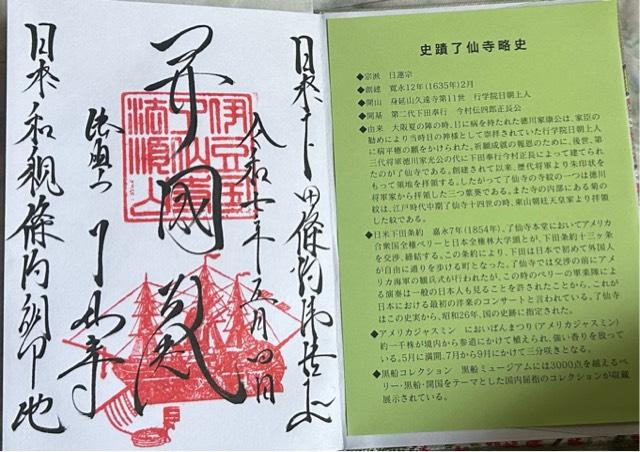 日米下田條約
令和七年五月四日
國
法順山
了仙寺
日本和親條約調印地
史蹟了仙寺略史
◆宗派　日蓮宗
◆創建　寛永12年(1635年)2月
◆開山　身延山久遠寺第11世　行学院日朝上人
◆開基　第二代下田奉行　今村伝四郎正長公
◆由来　大阪夏の陣の時、目に病を持たれた徳川家康公は、家臣の
勧めにより当時目の神様として崇拝されていた行学院日朝上人
に病平癒の願をかけられた。祈願成就の報恩のために、後世、第
三代将軍徳川家光公の代に下田奉行今村正長によって建てられ
たのが了仙寺である。創建されて以来、歴代将軍より朱印状を
もって領地を拝領する。したがって了仙寺の寺紋の一つは徳川
将軍家から拝領した三つ葉葵である。また寺の内部にある菊の
紋は、江戸時代中期了仙寺十四世の時、東山朝廷天皇家より拝領
した紋である。
◆日米下田条約　嘉永7年(1854年)、了仙寺本堂においてアメリカ
合衆国全権ペリーと日本全権林大学頭とが、下田条約十三ヶ条
を交渉、締結する。この条約により、下田は日本で初めて外国人
が自由に通りを歩ける町となった。了仙寺では交渉の前にアメ
リカ海軍の観兵式が行われたが、この時のペリーの軍楽隊によ
る演奏は一般の日本人も見ることを許されたことから、これが
日本における最初の洋楽のコンサートと言われている。了仙寺
はこの史実から、昭和26年、国の史跡に指定された。
◆アメリカジャスミン　においばんまつり(アメリカジャスミン)
約一千株が境内から参道にかけて植えられ、強い香りを放って
いる。5月に満開、7月から9月にかけて三分咲きとなる。
◆黒船コレクション　黒船ミュージアムには3000点を越えるペ
リー・黒船・開国をテーマとした国内屈指のコレクションが収蔵
展示されている。